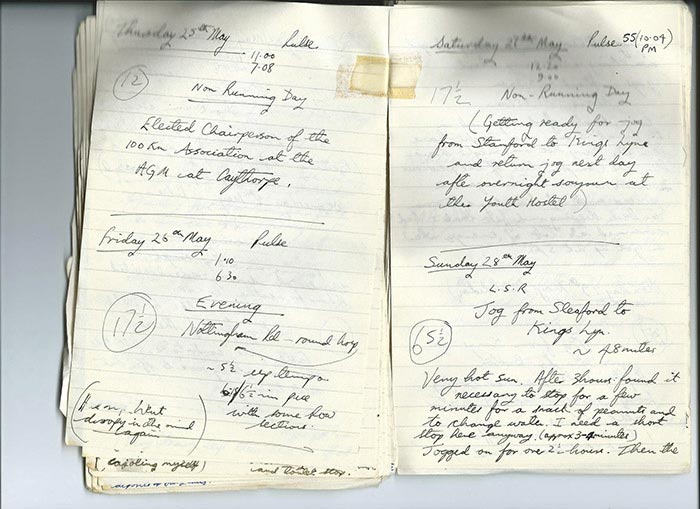 Thursday 25th May Pulse
11.00
7.08
12
Non Running Day
Elected Chairperson of the
100Km Association at the
AGM at Caythorpe.
Friday 26th May Pulse
1.10
6 30
Evening
17½
Nottingham Rd - round
~ 5½ up tempo
in
with some
again
cajoling myself)
and toilet stop.
Saturday 27th May Pulse 55 (10.04
PM
9 00
17½ Non-Running Day
(Getting ready for jog
from Stamford to Kings Lynn
and return jog next day
after overnight sojourn at
the Youth Hostel)
Sunday 28th May
L.S.R
Jog from Sleaford to
Kings Lyn.
65½
~ 48 miles
Very hot sun. After 3 hours found it
necessary to stop for a few
minutes for a snack of peanuts and
to change water. I need a short
stop here anyway. (approx 3-4 minutes)
Jogged on for over 2½ hours. Then the